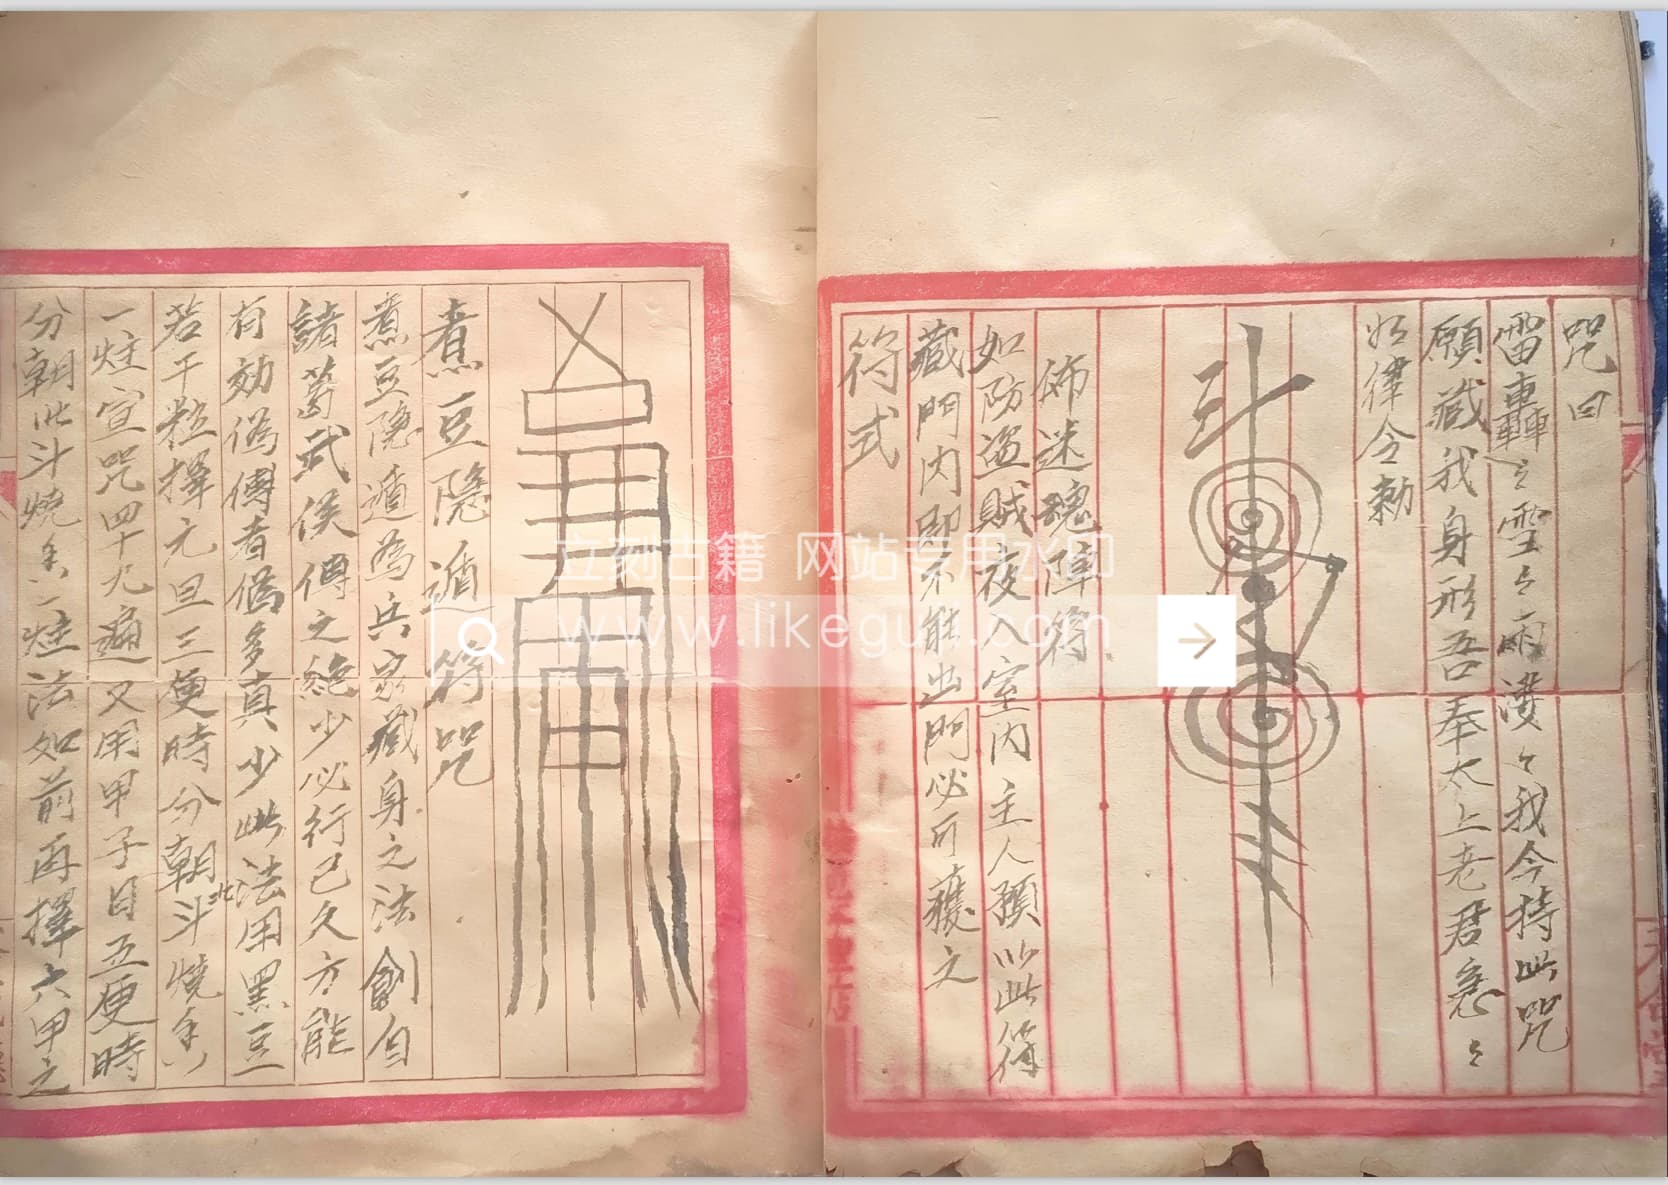 咒曰
雷轟々雪々雨濛々我今持此咒
願藏我身形吾奉太上老君急々
如律令勅
佈迷魂陣符
如防盜賊夜入室內主人預以此符
藏門內即不能出門必可獲之
符式
煮豆隱遁符咒
煮豆隱遁為兵家藏身之法創自
諸葛武侯傳之絕少必行已久方能
有効偽傳者偽多真少此法用黑豆
若干粒擇元旦三更時分朝北斗燒香
一炷宣咒四十九遍又用甲子日五更時
分朝北斗燒香一炷法如前再擇六甲之
立刻古籍 网站专用水印
www.likeguji.com